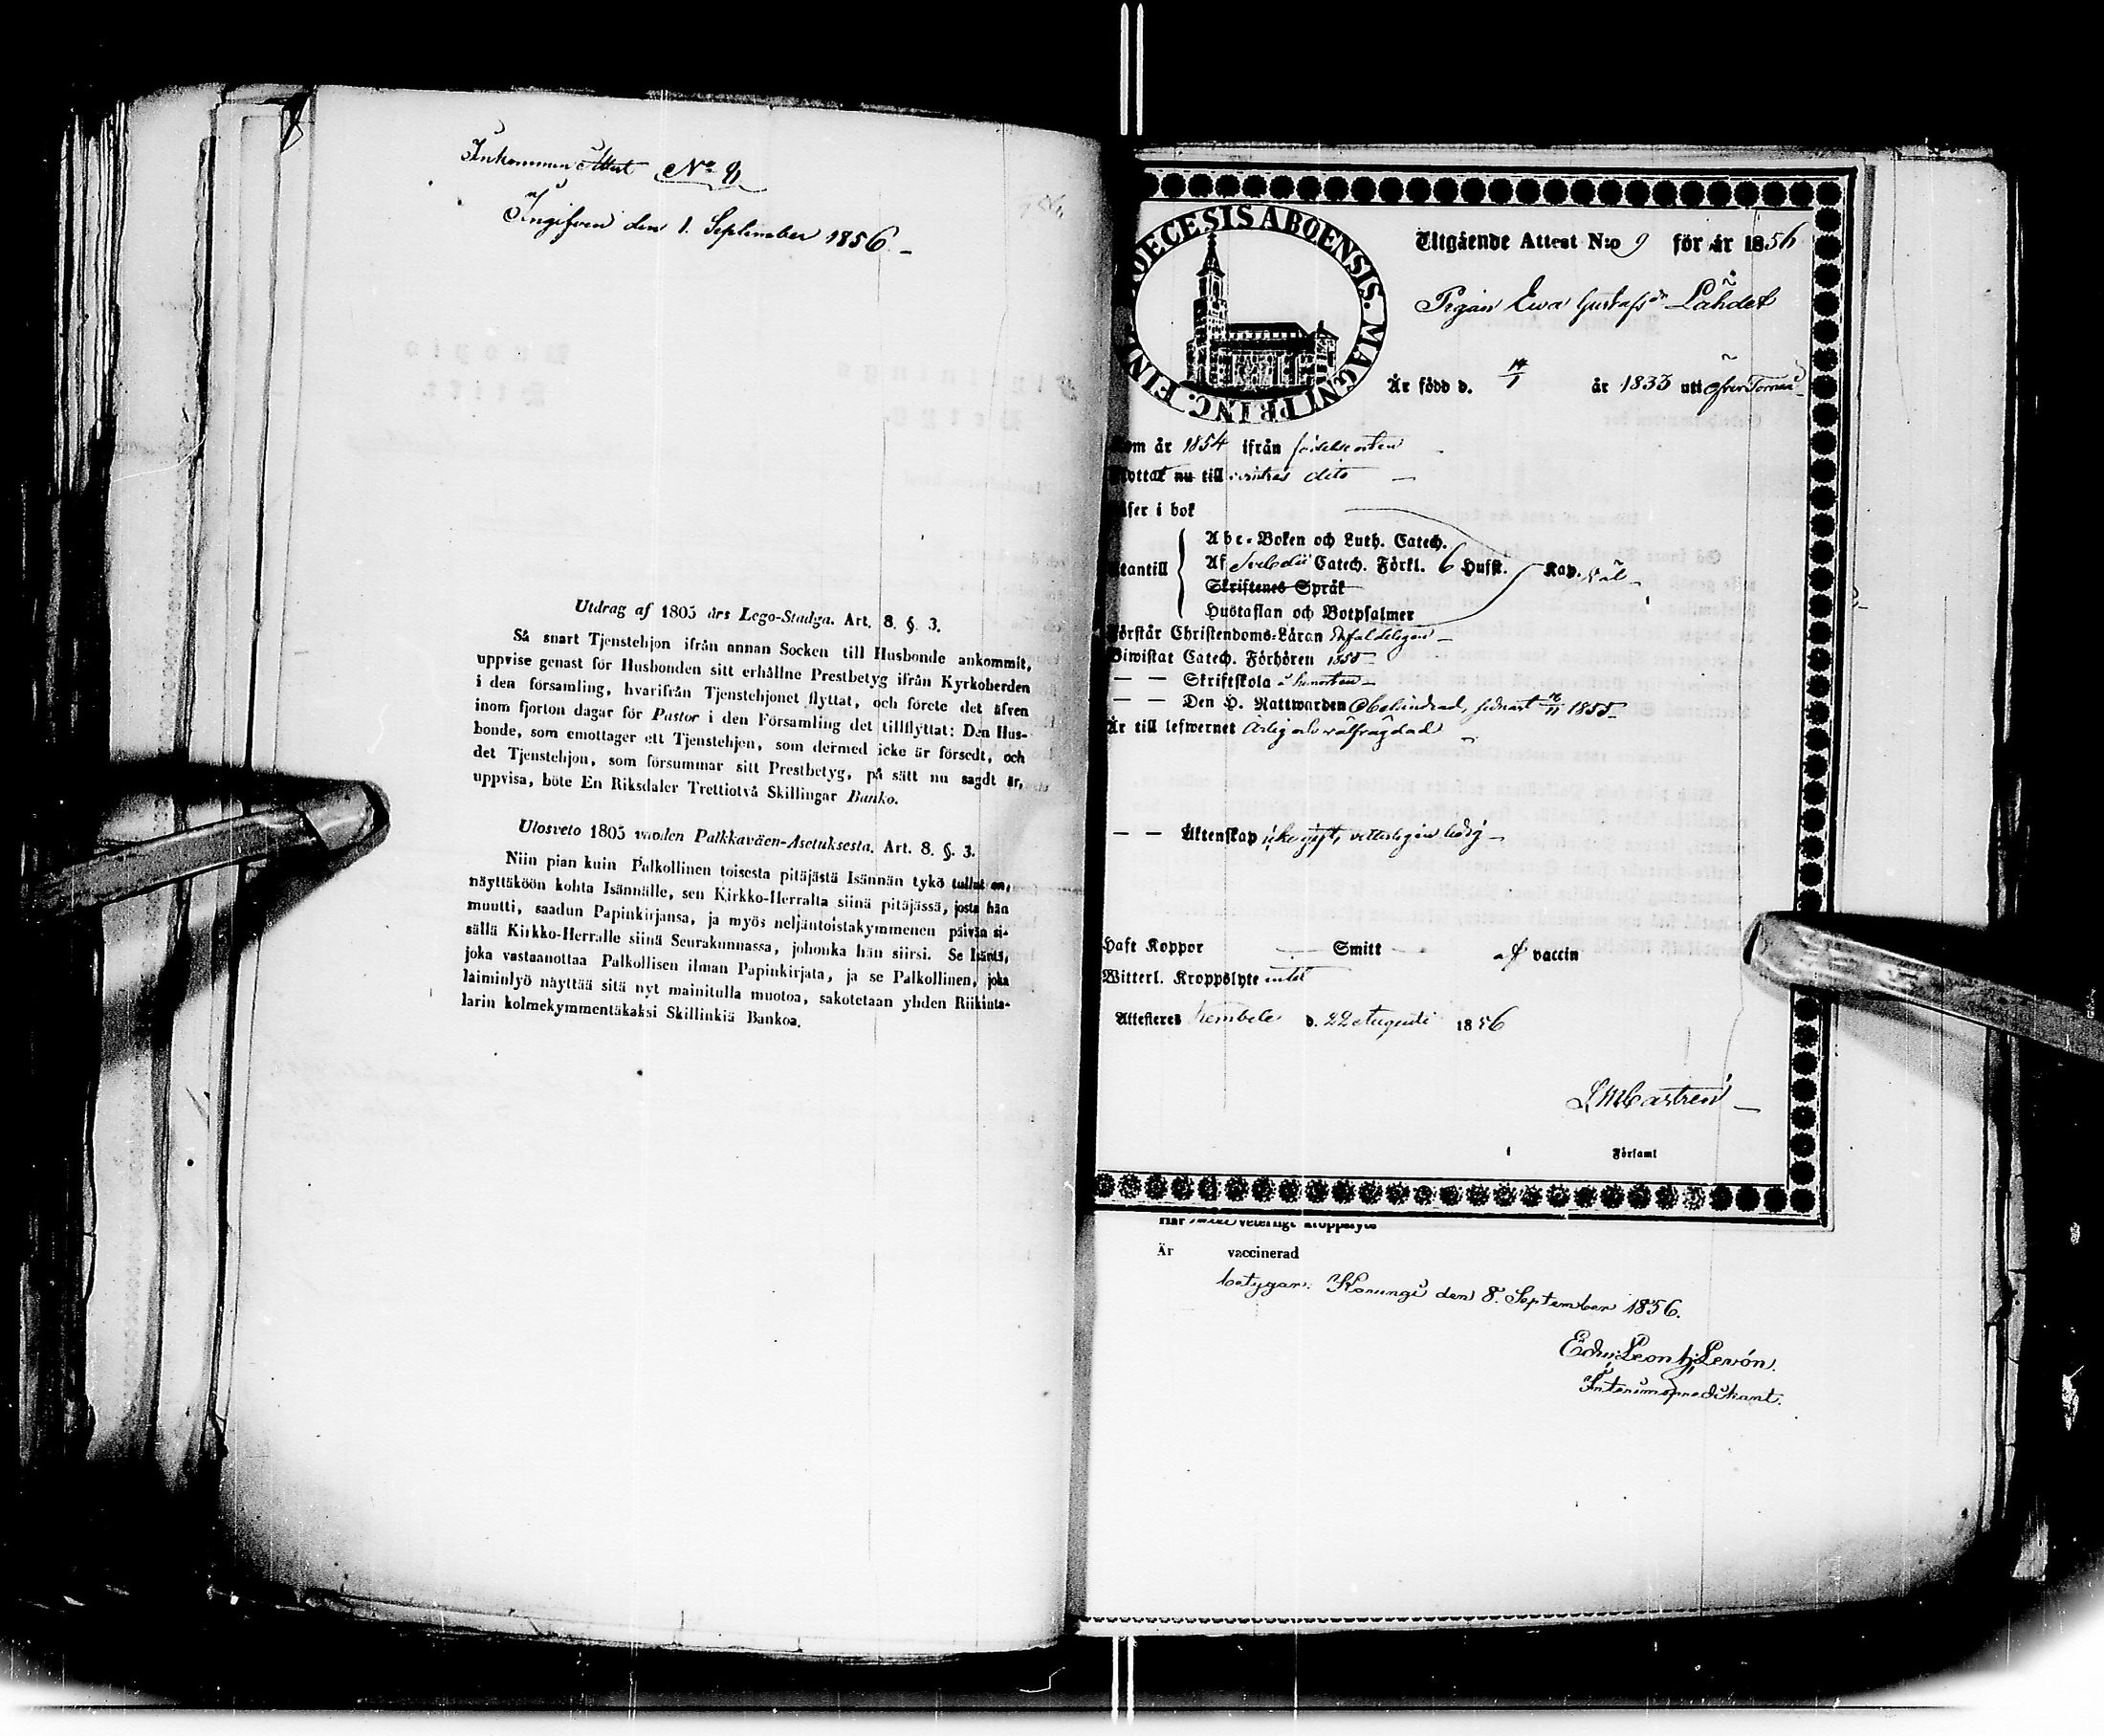 Inkommen Attest No 9
Ingifven den 1. September 1856. –
Utdrag af 1805 års Lego-Stadga. Art. 8. §. 3.
Så snart Tjenstehjon ifrån annan Socken till Husbonde ankommit,
uppvise genast för Husbonden sitt erhållne Prestbetyg ifrån Kyrkoherden
i den församling, hvarifrån Tjenstehjonet flyttat, och förete det äfven
inom fjorton dagar för Pastor i den Församling det tillflyttat: Den Hus-
bonde, som emottager ett Tjenstehjon, som dermed icke är försedt, och
det Tjenstehjon, som försummar sitt Prestbetyg, på sätt nu sagdt är,
uppvisa, böte En Riksdaler Trettiotvå Skillingar Banko.
Ulosveto 1805 vuoden Palkkaväen-Asetuksesta. Art. 8. §. 3.
Niin pian kuin Palkollinen toisesta pitäjästä Isännän tykö tullut on,
näyttäköön kohta Isännälle, sen Kirkko-Herralta siinä pitäjässä, josta hän
muutti, saadun Papinkirjansa, ja myös neljäntoistakymmenen päivän si-
sällä Kirkko-Herralle siinä Seurakunnassa, johonka hän siirsi. Se Isäntä,
joka vastaanottaa Palkollisen ilman Papinkirjata, ja se Palkollinen, joka
laiminlyö näyttää sitä nyt mainitulla muotoa, sakotetaan yhden Riikinta-
larin kolmekymmentäkaksi Skillinkiä Bankoa.
DECESIS ABOENSIS. MAGNI PRINC. FIN
Utgående Attest N:o 9 för år 1856
Pigan Ewa Gustafsdr Lahdet
Är född d. 14/1 år 1833 uti Öfver Torneå
om år 1854 ifrån födelseorten
yttat nu till dito
äser i bok
Abc-Boken och Luth. Catech.
tantill Af Svebelii Catech. Förkl. 6 Hufst. Kap. väl
Skriftenes Språk
Hustaflan och Botpsalmer
Förstår Christendoms-Läran enfaldeligen
Biwistat Catech. Förhören 1855
— — Skriftskola å hemorten
— — Den H. Nattwarden Obehindrad, sednast 1855
Är till lefwernet ärlig och välfrägdad
— — Äktenskap icke gift, vetterligen ledig
Haft Koppor — Smitt — af vaccin
Witterl. Kroppslyte intet
Attesteres Kembele d. 22 Augusti 1856
L M Castrén
Församl
Har intet veterligt kroppslyte
Är vaccinerad
betygar. Karungi den 8. September 1856.
Edv: Leont: Levón.
Interimspredikant.